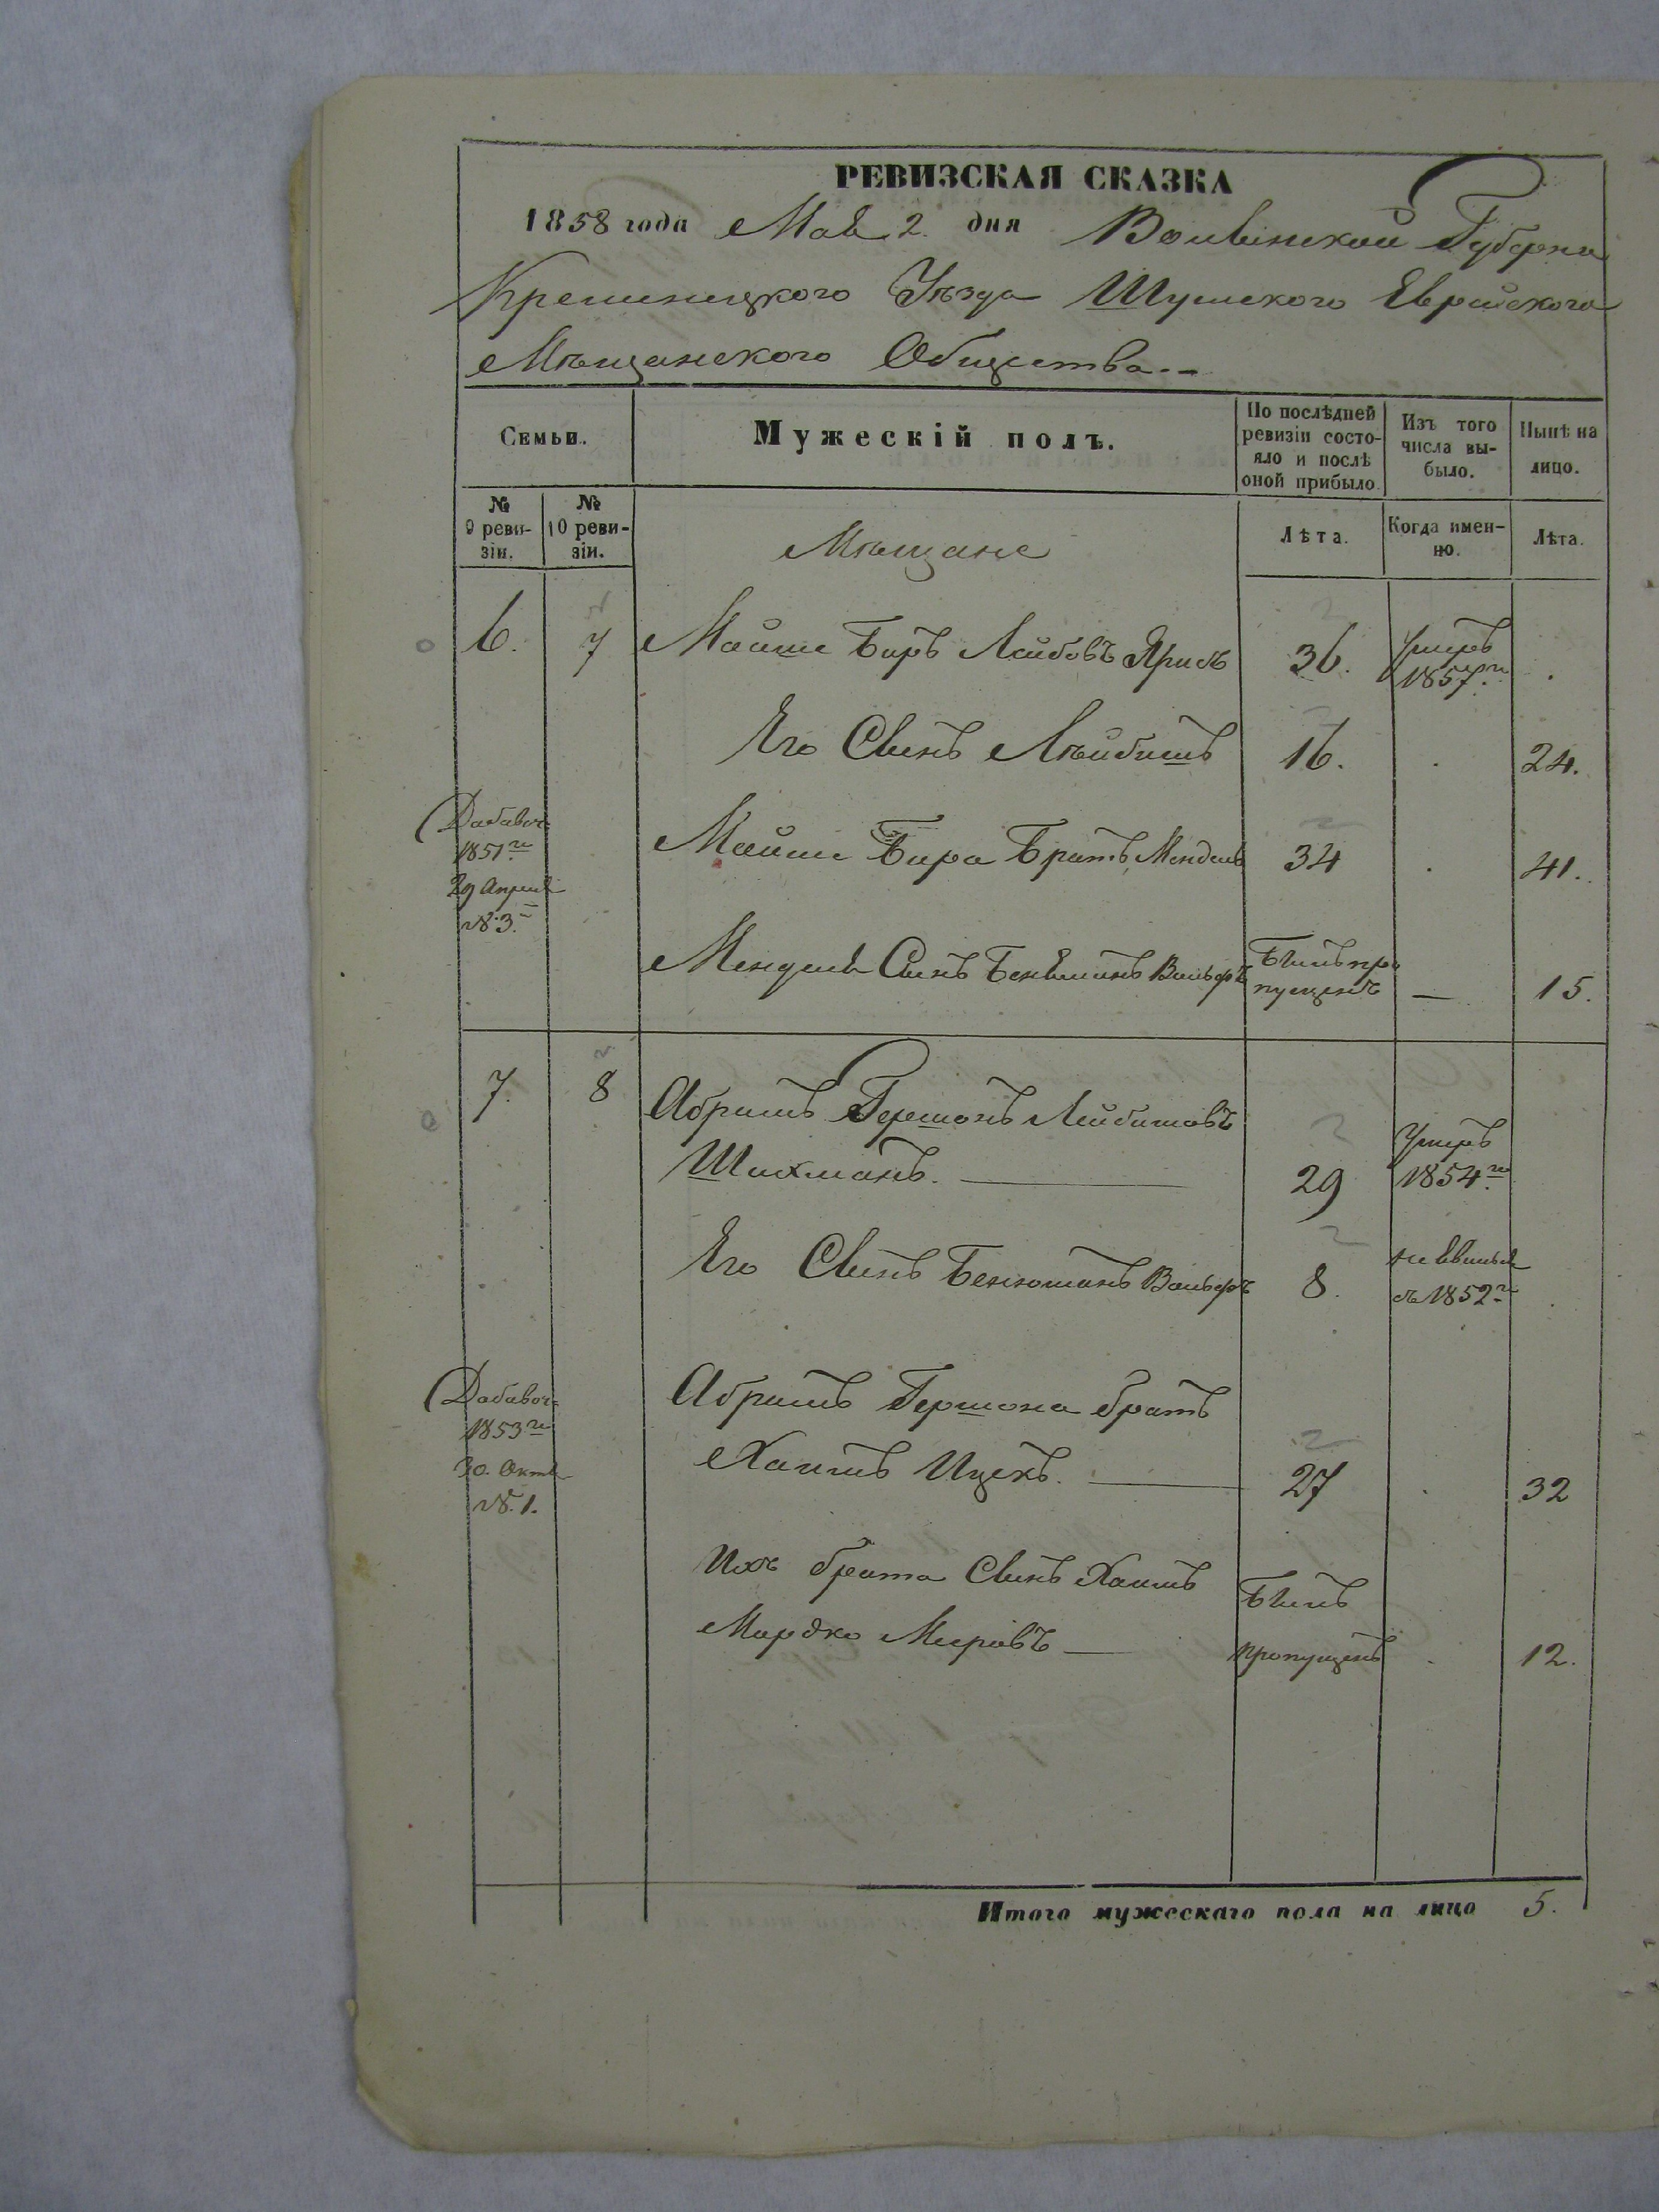 РЕВИЗСКАЯ СКАЗКА
1858 года Мая 2. дня Волынской Губерни
Кременецкого Уѣзда Шумского Еврейского
Мѣщанского Общества.-
Семьи.
Мужескій полъ.
По послѣдней ревизіи состо-
яло и послѣ оной прибыло.
Изъ того числа вы-
было.
Нынѣ на лицо.
№ 9 реви-
зіи.
№ 10 реви-
зіи.
Мѣщане
Лѣта.
Когда имен-
но.
Лѣта.
6. 7 Мойше Биръ Лейбовъ 36. Умеръ 1857 г.
Его Сынъ Лейбишъ 16. . 24.
Добавоч. 1851 г. 29 Апреля №3.
Мойше Бира Братъ Мендель 34 . 41.
Менделя Сынъ Беньминъ Вольфъ Былъ пропущенъ — 15.
7. 8 Абрамъ Гершонъ Лейбишовъ
Шихманъ. — 29 Умеръ 1854 г.
Его Сынъ Бенюминъ Вольфъ 8. не явился съ 1852 г.
Добавоч. 1853 г. 30. Октя №. 1.
Абрамъ Гершона братъ
Хаимъ Ицекъ. — 27 . 32
Ихъ брата Сынъ Хаимъ Былъ
Мордко Меровъ — пропущенъ . 12.
Итого мужескаго пола на лицо 5.